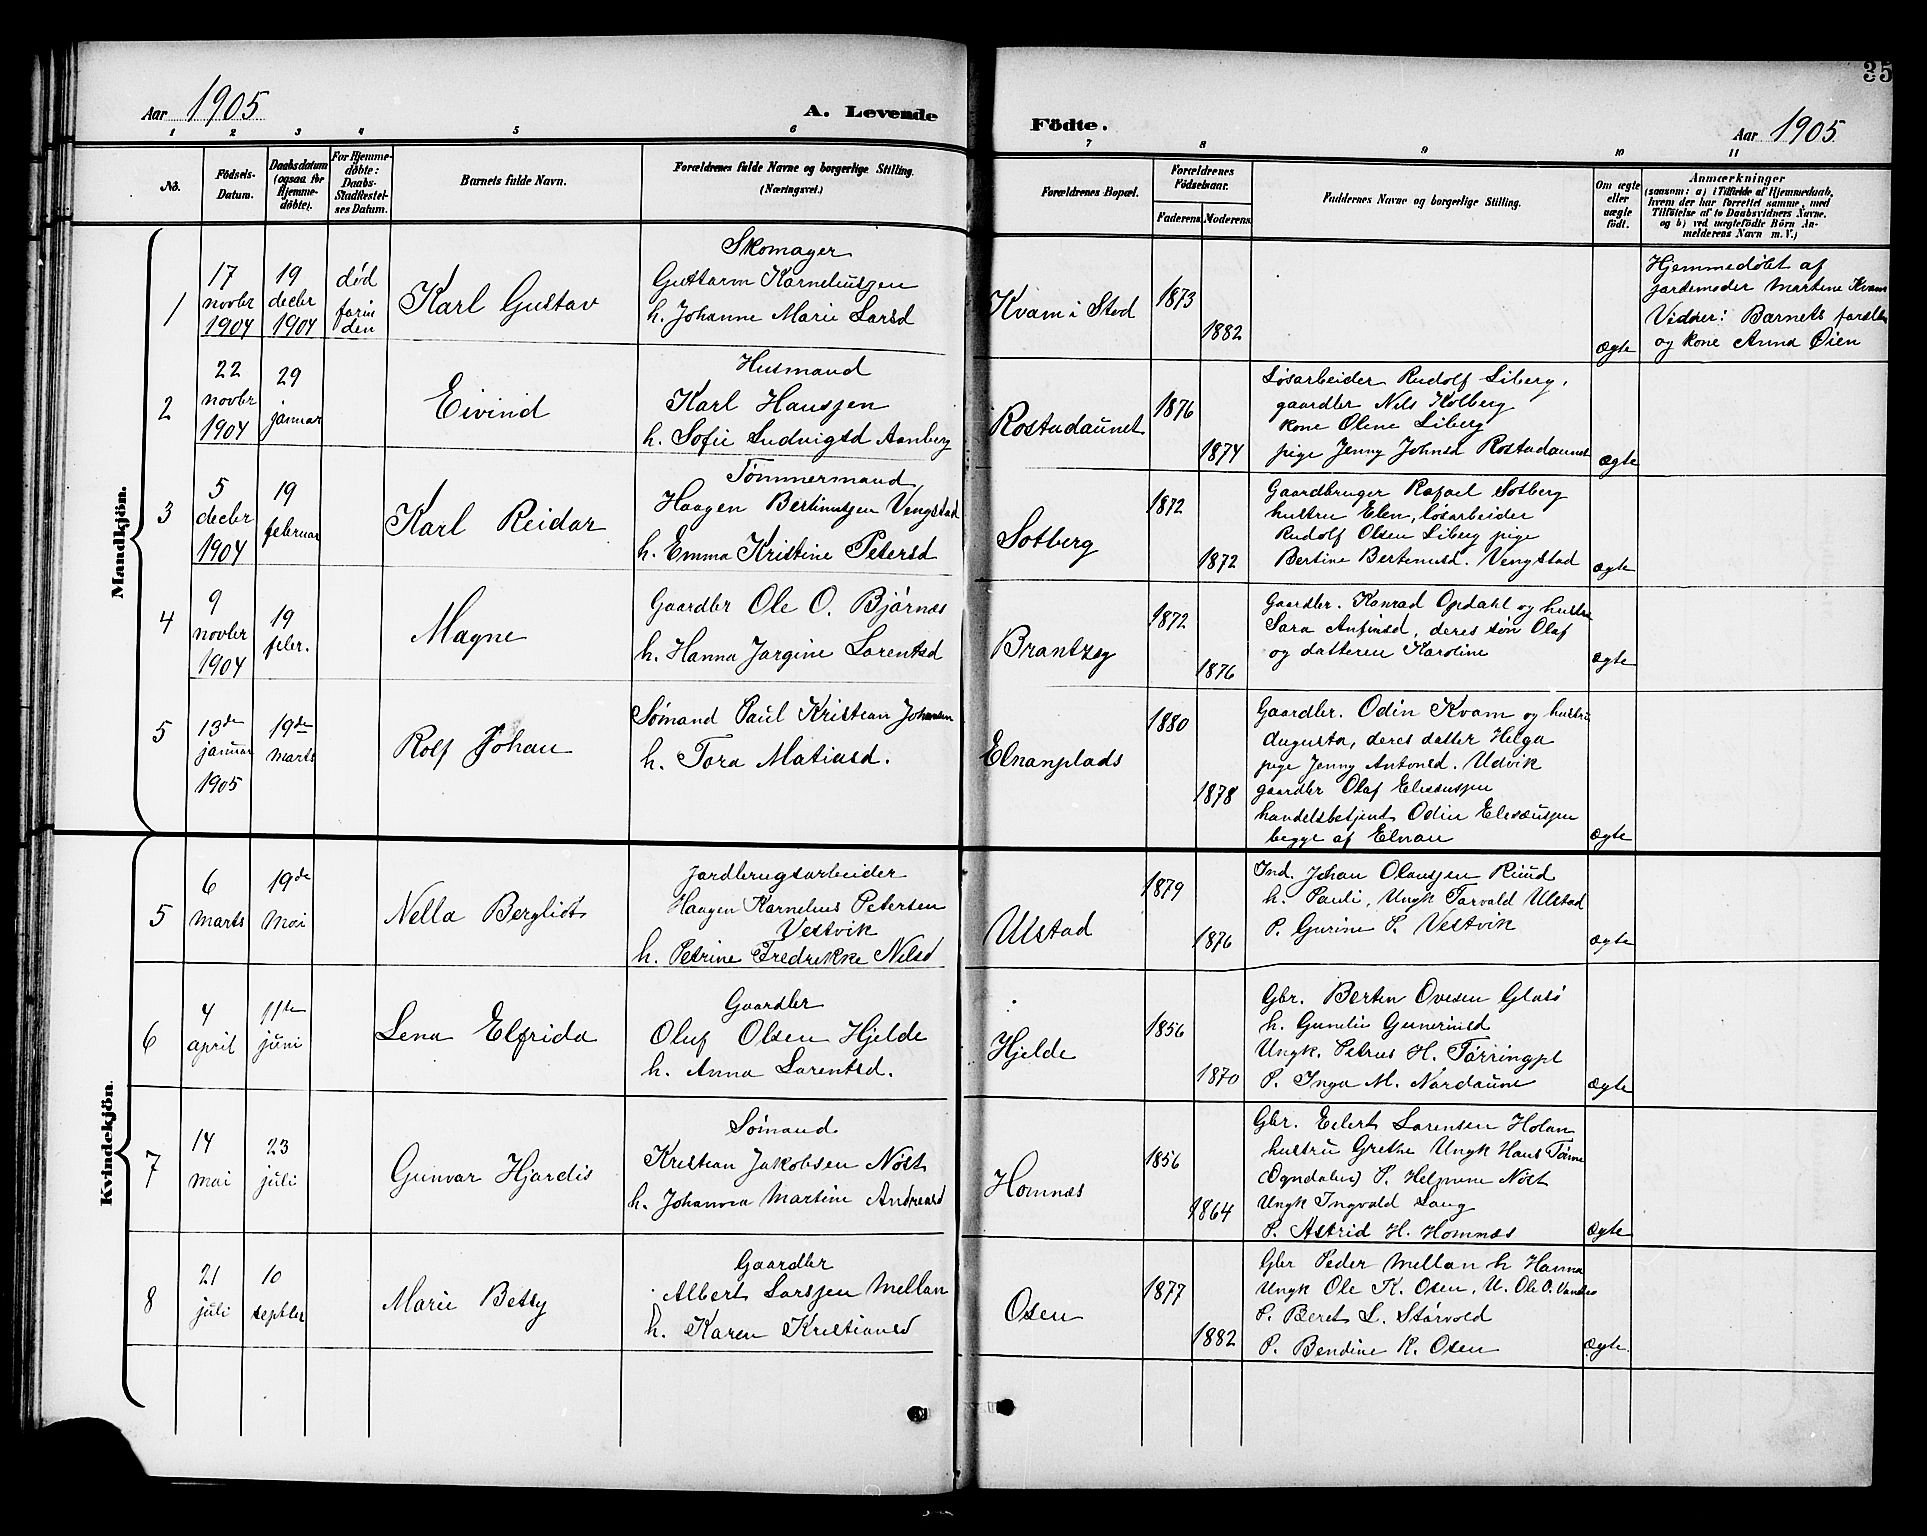 35
Aar 1905
A. Levende
Födte.
Aar 1905
1 2 3 4 5 6 7 8 9 10 11
No.
Fødsels-
Datum.
Daabsdatum
(ogsaa for
Hjemme-
døbte).
For Hjemme-
døbte:
Daabs-
Stadfæstel-
ses Datum.
Barnets fulde Navn.
Forældrenes fulde Navne og borgerlige Stilling.
(Næringsvei.)
Forældrenes Bopæl.
Forældrenes
Fødselsaar.
Faderens. Moderens.
Faddernes Navne og borgerlige Stilling.
Om ægte
eller
uægte
født.
Anmærkninger
(saasom: a) i Tilfælde af Hjemmedaab,
hvem der har forrettet samme, med
Tilføielse af to Daabsvidners Navne,
og b) ved uægtefødte Børn An-
melderens Navn m. V.)
Mandkjön.
1
17
novbr
1904
19
decbr
1904
død
forin
den
Karl Gustav
Skomager
Guttorm Korneliussen
h. Johanne Marie Larsd
Kvam i Stod
1873
1882
ægte
Hjemmedøbt af
jordemoder Martine Kvam
Vidner: Barnets forældre
og kone Anna Øien
2
22
novbr
1904
29
januar
Eivind
Husmand
Karl Hansen
h. Sofie Ludvigsd Aanberg
Rostadaunet
1876
1874
Løsarbeider Rudolf Liberg,
gaardbr Nils Kolberg
kone Oline Liberg
pige Jenny Johnsd Rostadaunet
ægte
3
5
decbr
1904
19
februar
Karl Reidar
Tømmermand
Haagen Bertinussen Vengstad
h. Emma Kristine Petersd
Sotberg
1872
1872
Gaardbruger Rafael Sotberg
hustru Elen, løsarbeider
Rudolf Olsen Liberg pige
Bertine Bertinusd. Vengstad
ægte
4
9
novbr
1904
19
febr.
Magne
Gaardbr Ole O. Bjørnæs
h. Hanna Jørgine Lorentsd
Brantzeg
1872
1876
Gaardbr. Konrad Opdahl og hustru
Sara Anfinsd, deres søn Olaf
og datteren Karoline
ægte
5
13de
januar
1905
19de
marts
Rolf Johan
Sømand Paul Kristian Johansen
h. Tora Matiasd.
Elnanplads
1880
1878
Gaardbr. Odin Kvam og hustru
Augusta, deres datter Helga
pige Jenny Antonsd. Udvik
gaardbr Olaf Eliseussen
handelsbetjent Odin Eliseussen
begge af Elnan
ægte
Kvindekjön.
5
6
marts
19de
mai
Nella Bergliot
Jordbrugsarbeider
Haagen Kornelius Petersen
Vestvik
h. Petrine Fredrikke Nilsd
Ulstad
1879
1876
Ind. Johan Olaussen Ruud
h. Pauli, Ungk Torvald Ulstad
P. Gurine P. Vestvik
ægte
6
4
april
11te
juni
Lena Elfrida
Gaardbr
Oluf Olsen Hjelde
h. Anna Lorentsd.
Hjelde
1856
1870
Gbr. Berten Ovesen Glasø
h. Gunelie Guneriusd
Ungk. Petrus H. Tørringpl
P. Inga M. Nordaune
ægte
7
14
mai
23
juli
Gunvor Hjørdis
Sømand
Kristian Jakobsen Nøst
h. Johanna Martine Andreasd
Homnæs
1856
1864
Gbr. Eilert Lorensen Holan
hustru Grethe Ungk Hans Tømme
(Ogndalen) P. Helmine Nøst
Ungk Ingvald Laug
P. Astrid H. Homnæs
ægte
8
21
juli
10
septbr
Marie Betsy
Gaardbr
Albert Larsen Mellan
h. Karen Kristiansd
Osen
1877
1882
Gbr Peder Mellan h Hanna
Ungk Ole K. Osen, U. Ole O.
P. Beret L. Størvold
P. Bendine K. Osen
ægte